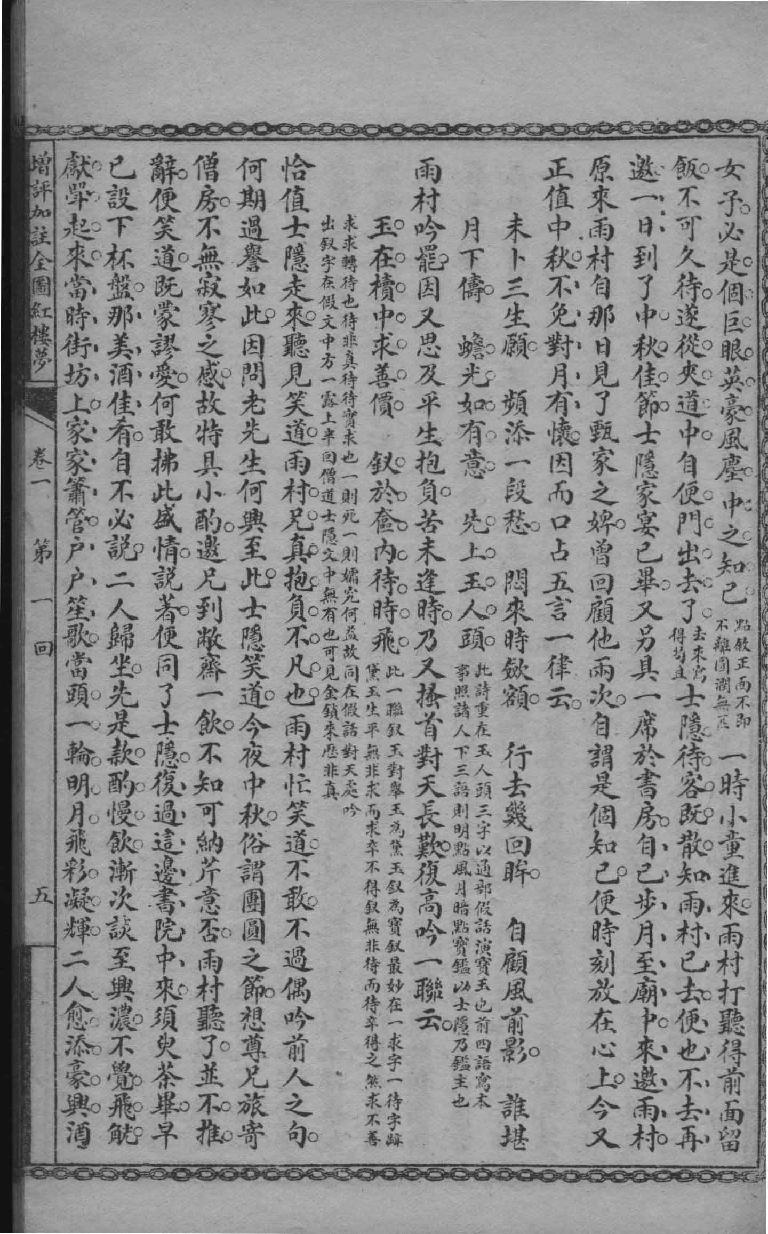 女子必是個巨眼英豪風塵中之知己點敘正面不即不離圓潤無 一時小童進來雨村打聽得前面留
飯不可久待遂從夾道中自便門出去了去來寫得苟且士隱待客既散知雨村已去便也不去再
邀一日到了中秋佳節士隱家宴已畢又另具一席於書房自己步月至廟中來邀雨村
原來雨村自那日見了甄家之婢曾回顧他兩次自謂是個知己便時刻放在心上今又
正值中秋不免對月有懷因而口占五言一律云
未卜三生願 頻添一段愁 悶來時斂額 行去幾回眸 自顧風前影 誰堪
月下儔 蟾光如有意 先上玉人頭此詩重在玉人頭三字以通部假話演寶玉也前四語寫本事照諸人下三語則明點風月暗點寶鑑以士隱乃鑑主也
雨村吟罷因又思及平生抱負苦未逢時乃又搔首對天長歎復高吟一聯云
玉在櫝中求善價 釵於奩內待時飛此一聯釵玉對舉玉為黛玉釵為寶釵最妙在一求字一待字蹟黛玉生平無非求而求卒不得釵無非待而待卒得之然求不善
求求轉待也待非真待待實求也一則死一則孀究何益故同在假話對天處吟
出釵字在假文中方一露上半回僧道士隱文中無有也可見金鎖來歷非真
恰值士隱走來聽見笑道雨村兄真抱負不凡也雨村忙笑道不敢不過偶吟前人之句
何期過譽如此因問老先生何興至此士隱笑道今夜中秋俗謂團圓之節想尊兄旅寄
僧房不無寂寥之感故特具小酌邀兄到敝齋一飲不知可納芹意否雨村聽了並不推
辭便笑道既蒙謬愛何敢拂此盛情說著便同了士隱復過這邊書院中來須臾茶畢早
已設下杯盤那美酒佳肴自不必說二人歸坐先是款酌慢飲漸次談至興濃不覺飛觥
獻斝起來當時街坊上家家簫管戶戶笙歌當頭一輪明月飛彩凝輝二人愈添豪興酒
增評加註全圖紅樓夢 卷一 第一回 五